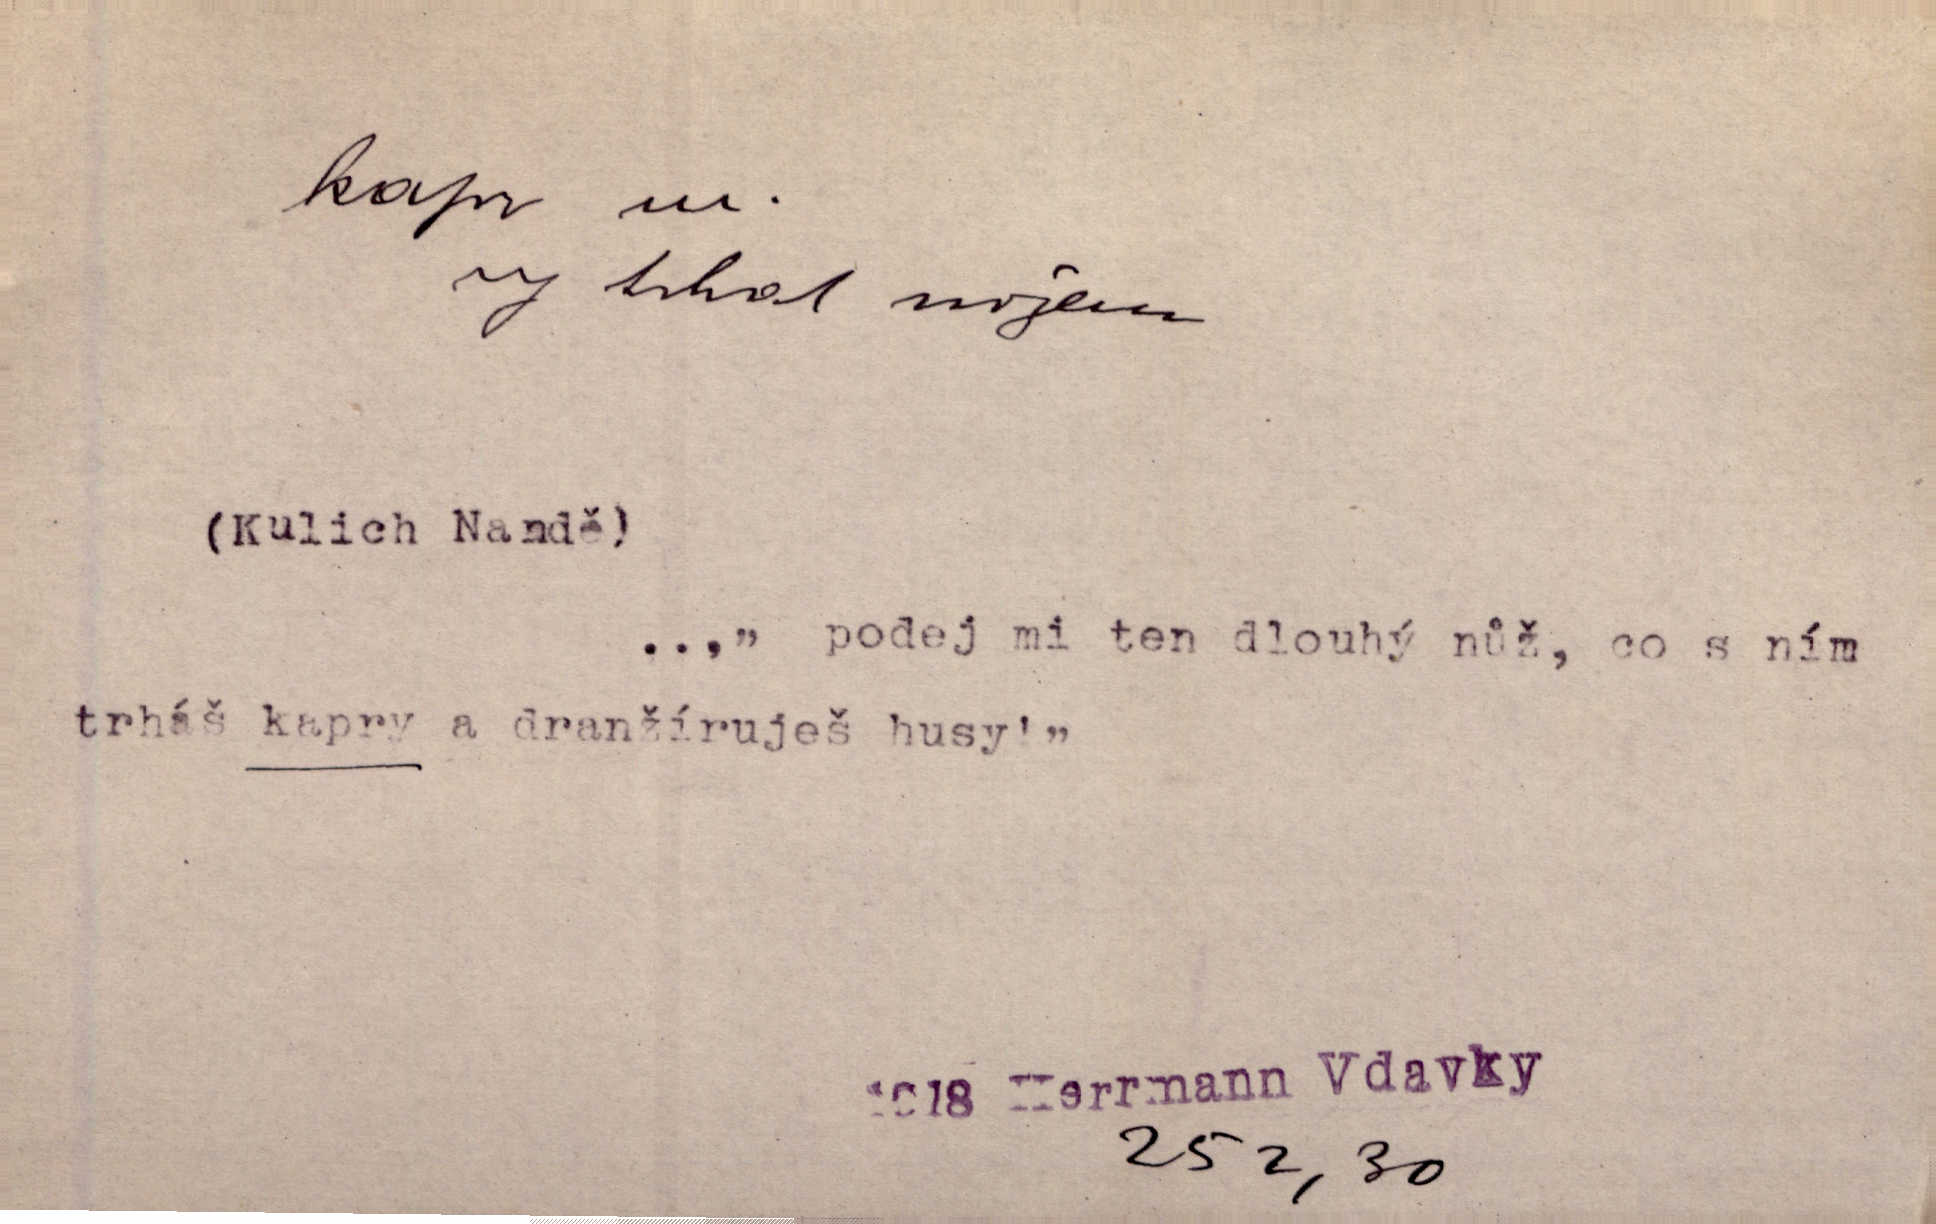 kapr m.
vy trhat nožem
(Kulich Nandě)
..,” podej mi ten dlouhý nůž, co s ním
trháš kapry a dranžíruješ husy!”
1918 Herrmann Vdavky
252, 30